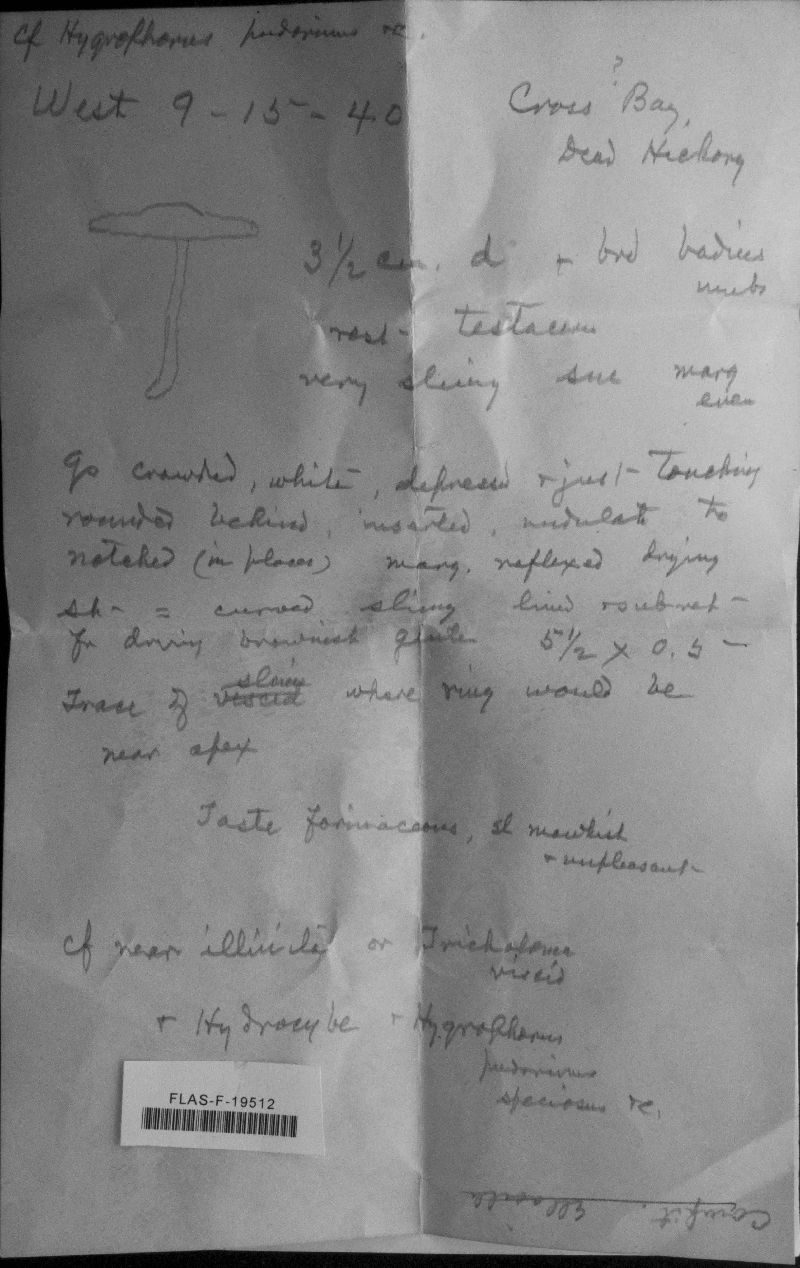 cf Hygrophorus pudorinus &c.
West 9-15-40
Cross ? Bay,
Dead Hickory
3 1/2 cm. d + brd badius
umbo
rest- testaceus
very slimy sur marg
even
gs crowded, white, depressed + just touching
rounded behind, inserted, undulate to
notched (in places) marg. reflexed drying
st- = curved slimy
fr drying brownish gluten 5 1/2 x 0.5-
Trace of viscid slime where ring would be
near apex
Taste farinaceous, sl mawkish
+ unpleasant-
cf near illinita or Tricholoma
viscid
+ Hydrocybe + Hygrophorus
pudorinus
speciosus &c.
FLAS-F-19512